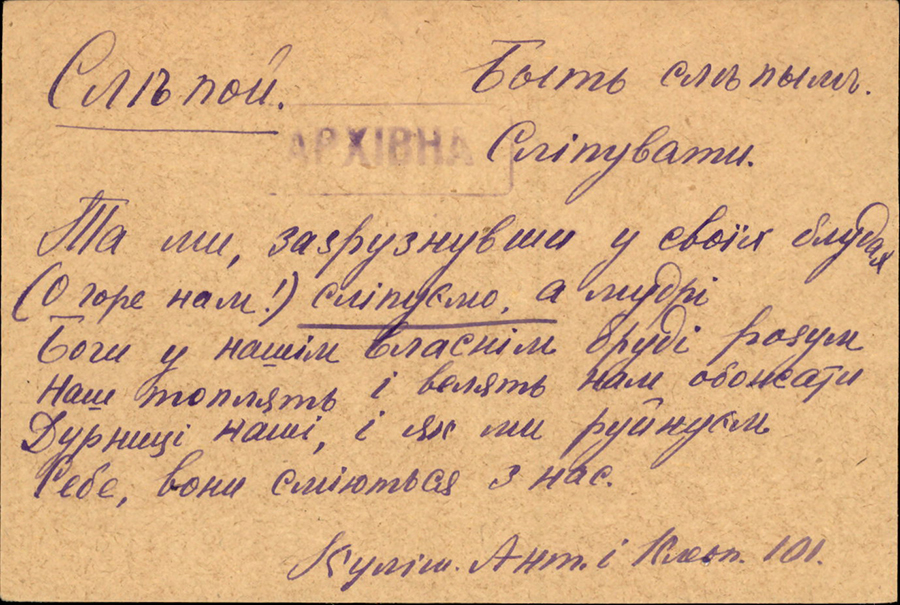 Слѣпой. Быть слѣпымъ.
АРХІВНА Сліпувати.
Та ми, загрузнувши у своїх блудах
(О горе нам!) сліпуємо, а мудрі
Боги у нашім власнім бруді розум
наш топлять і велять нам обожати
Дурниці наші, і як ми руйнуєм
Себе, вони сміються з нас.
Куліш. Ант. і Клеоп. 101.